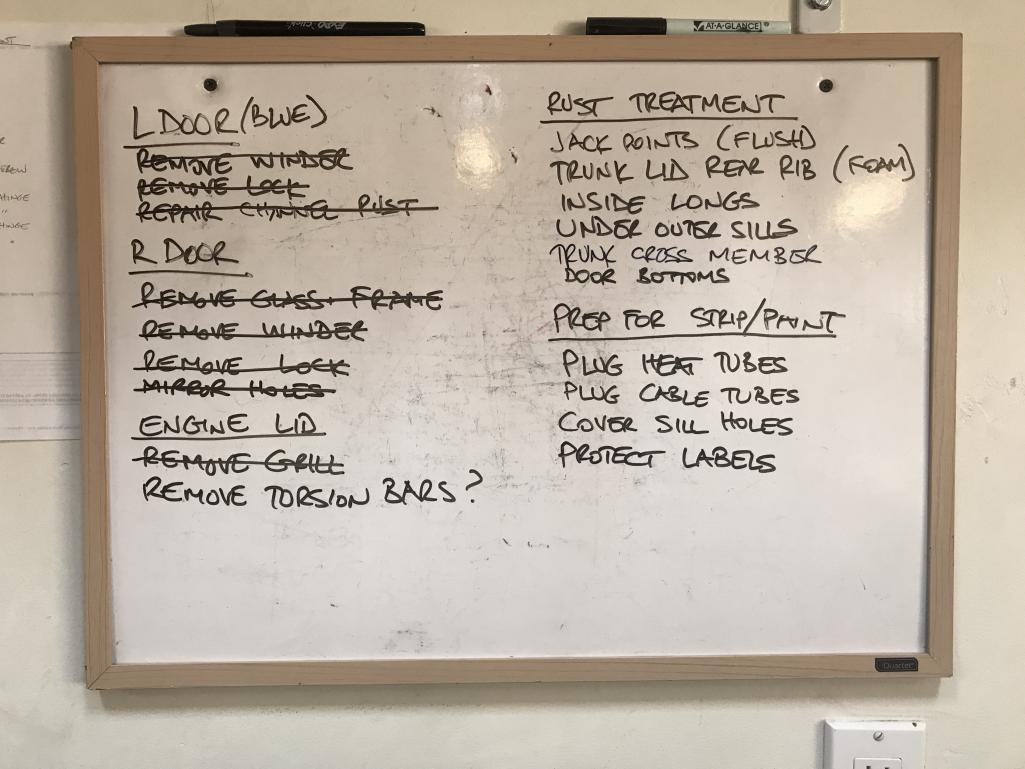 EXPO CLICK
AT-A-GLANCE
L DOOR (BLUE)
REMOVE WINDER
REMOVE LOCK
REPAIR CHANNEL RUST
R DOOR
REMOVE GLASS + FRAME
REMOVE WINDER
REMOVE LOCK
MIRROR HOLES
ENGINE LID
REMOVE GRILL
REMOVE TORSION BARS?
RUST TREATMENT
JACK POINTS (FLUSH)
TRUNK LID REAR RIB (FOAM)
INSIDE LONGS
UNDER OUTER SILLS
TRUNK CROSS MEMBER
DOOR BOTTOMS
PREP FOR STRIP/PAINT
PLUG HEAT TUBES
PLUG CABLE TUBES
COVER SILL HOLES
PROTECT LABELS
Quartet